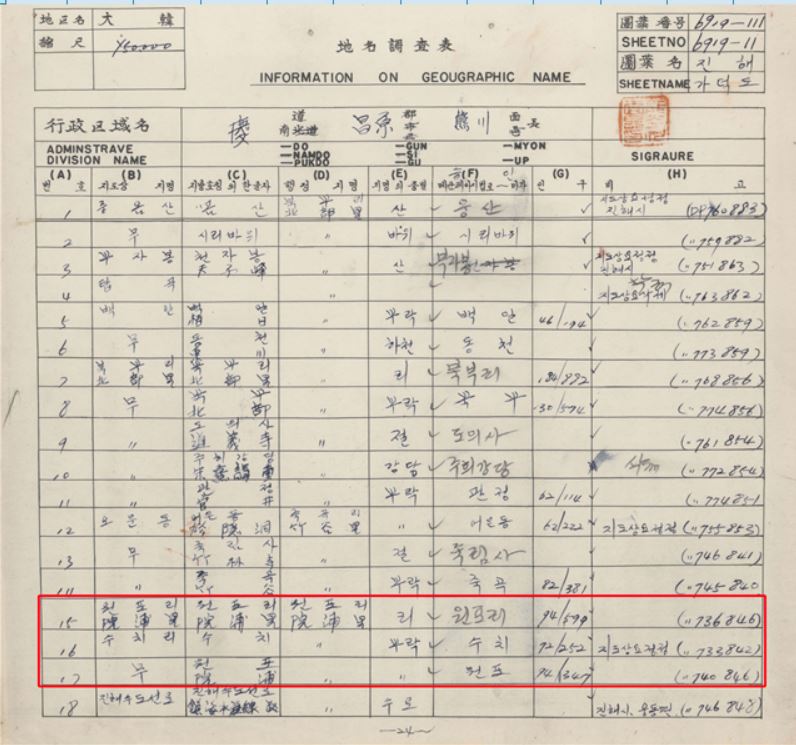 地区名 大韓
縮尺 1/50000
地名調査表
INFORMATION ON GEOUGRAPHIC NAME
圖葉番号 6919-111
SHEETNO 6919-11
圖葉名 진해
SHEETNAME 가덕도
行政区域名 慶 道 昌原 郡 熊川 面長
南北道 市
ADMINSTRAVE —DO —GUN —MYON
DIVISION NAME —NAMDO —SI —UP
—PUKDO —GU
SIGRAURE
(A) (B) (C) (D) (E) (F) (G) (H)
번호 지도상 지명 행정 지명 지명의 종별 인구 비고
1 웅산 북부리 산 웅산 지도상요정정
北部里 진해시 (DP760883)
2 무 시리바위 〃 바위 시리바위 (〃759882)
3 부자봉 천자봉 〃 산 지도상요정정
天子峰 진해시 (〃751863)
4 〃 (〃763862)
5 백일 백일 〃 부락 백일 46/194 (〃762859)
柏日
6 무 동천 〃 하천 동천 (〃773859)
東川
7 북부리 북부리 〃 리 북부리 (〃768856)
北部里 北部里
8 무 북부 〃 부락 북부 130/574 (〃774856)
北部
9 〃 도의사 〃 절 도의사 (〃761854)
道義寺
10 〃 주희강당 〃 강당 주희강당 (〃772854)
11 〃 관정 〃 부락 관정 62/114 (〃774851
官井
12 오문동 어은동 죽곡리 〃 어은동 62/222 지도상요정정 (〃755853)
竹谷里
13 무 죽림사 〃 절 죽림사 (〃746841)
竹林寺
14 〃 죽곡 〃 부락 죽곡 82/381 (〃745840
竹谷
15 원포리 원포리 원포리 리 원포리 94/599 (〃736846)
院浦里 院浦里 院浦里
16 수치리 수치 〃 부락 수치 72/252 지도상요정정 (〃733842)
17 무 원포 〃 〃 원포 94/347 (〃740846)
院浦
18 진해수도선로 진해수도선로 〃 수로 진해시, 웅동면, (〃746848)
—24—